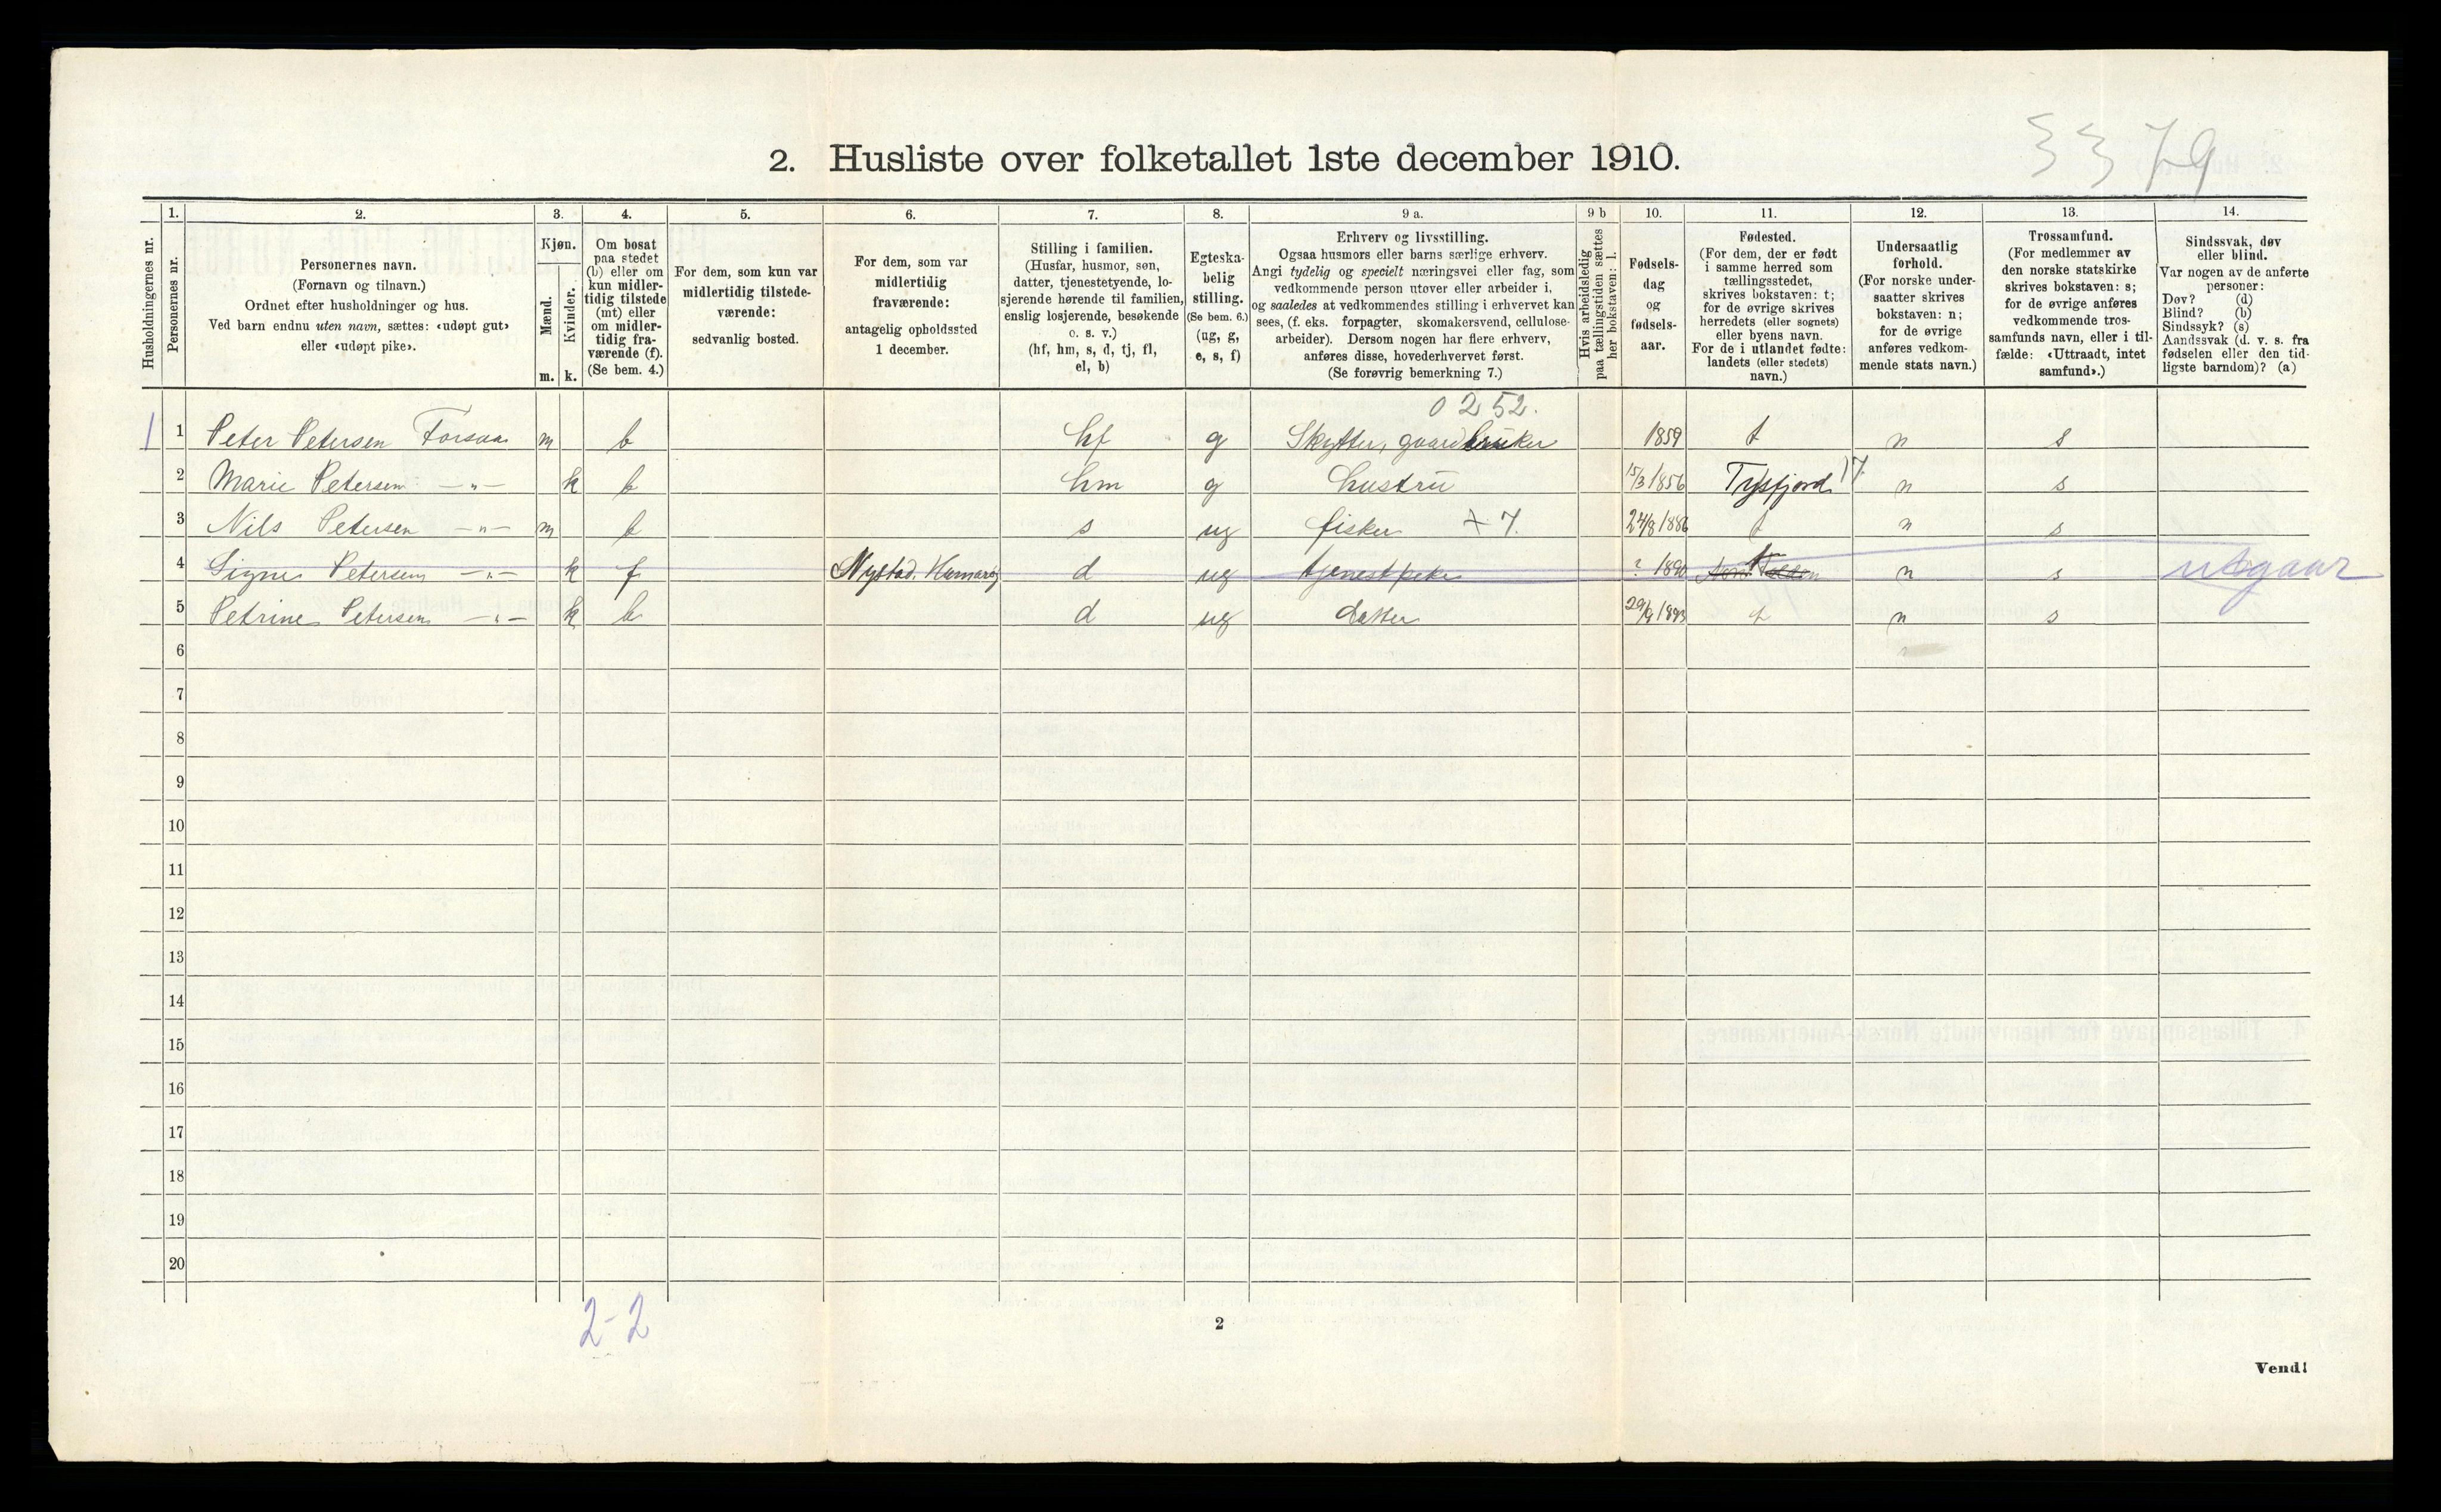 3379
2. Husliste over folketallet 1ste december 1910.
Husholdningernes nr.
1. Personernes nr.
2. Personernes navn.
(Fornavn og tilnavn.)
Ordnet efter husholdninger og hus.
Ved barn endnu uten navn, sættes: «udøpt gut»
eller «udøpt pike».
3. Kjøn.
Mænd. m.
Kvinder. k.
4. Om bosat
paa stedet
(b) eller om
kun midler-
tidig tilstede
(mt) eller
om midler-
tidig fra-
værende (f).
(Se bem. 4.)
5. For dem, som kun var
midlertidig tilstede-
værende:
sedvanlig bosted.
6. For dem, som var
midlertidig
fraværende:
antagelig opholdssted
1 december.
7. Stilling i familien.
(Husfar, husmor, søn,
datter, tjenestetyende, lo-
sjerende hørende til familien,
enslig losjerende, besøkende
o. s. v.)
(hf, hm, s, d, tj, fl,
el, b)
8. Egteska-
belig
stilling.
(Se bem. 6.)
(ug, g,
e, s, f)
9 a. Erhverv og livsstilling.
Ogsaa husmors eller barns særlige erhverv.
Angi tydelig og specielt næringsvei eller fag, som
vedkommende person utøver eller arbeider i,
og saaledes at vedkommendes stilling i erhvervet kan
sees, (f. eks. forpagter, skomakersvend, cellulose-
arbeider). Dersom nogen har flere erhverv,
anføres disse, hovederhvervet først.
(Se forøvrig bemerkning 7.)
9 b Hvis arbeidsledig
paa tællingstiden sættes
her bokstaven: l.
10. Fødsels-
dag
og
fødsels-
aar.
11. Fødested.
(For dem, der er født
i samme herred som
tællingsstedet,
skrives bokstaven: t;
for de øvrige skrives
herredets (eller sognets)
eller byens navn.
For de i utlandet fødte:
landets (eller stedets)
navn.)
12. Undersaatlig
forhold.
(For norske under-
saatter skrives
bokstaven: n;
for de øvrige
anføres vedkom-
mende stats navn.)
13. Trossamfund.
(For medlemmer av
den norske statskirke
skrives bokstaven: s;
for de øvrige anføres
vedkommende tros-
samfunds navn, eller i til-
fælde: «Uttraadt, intet
samfund».)
14. Sindssvak, døv
eller blind.
Var nogen av de anførte
personer:
Døv? (d)
Blind? (b)
Sindssyk? (s)
Aandssvak (d. v. s. fra
fødselen eller den tid-
ligste barndom)? (a)
0252.
1 1 Peter Petersen Forsaa m b hf g Skytter, gaardbruker 1859 t n s
2 Marie Petersen —"— k b hm g hustru 15/3 1856 Tysfjord 17. n s
3 Nils Petersen —"— m b s ug fisker +7. 24/8 1886 t n s
4 Signe Petersen —"— k f Nystad. Hamarøy d ug tjenestpike ? 1890 t n s utgaar
5 Petrine Petersen —"— k b d ug datter 29/9 1893 t n s
6
7
8
9
10
11
12
13
14
15
16
17
18
19
20
2-2
2
Vend!